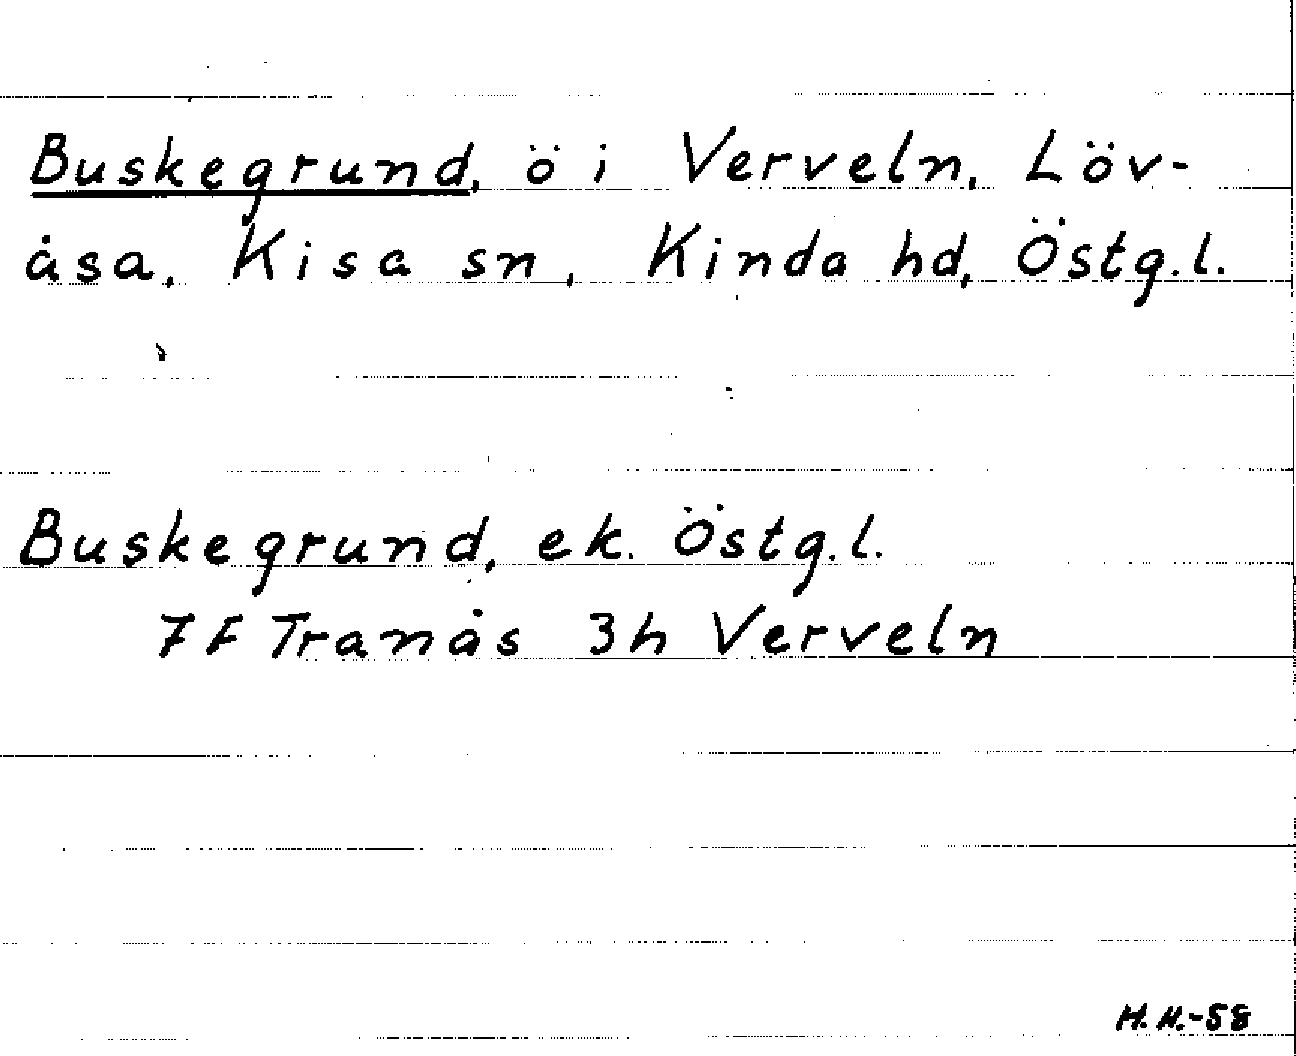 Buskegrund, ö i Verveln, Löv-
åsa, Kisa sn, Kinda hd, Östg.l.
Buskegrund, ek. Östg.l.
7F Tranås 3h Verveln
H.H.-58